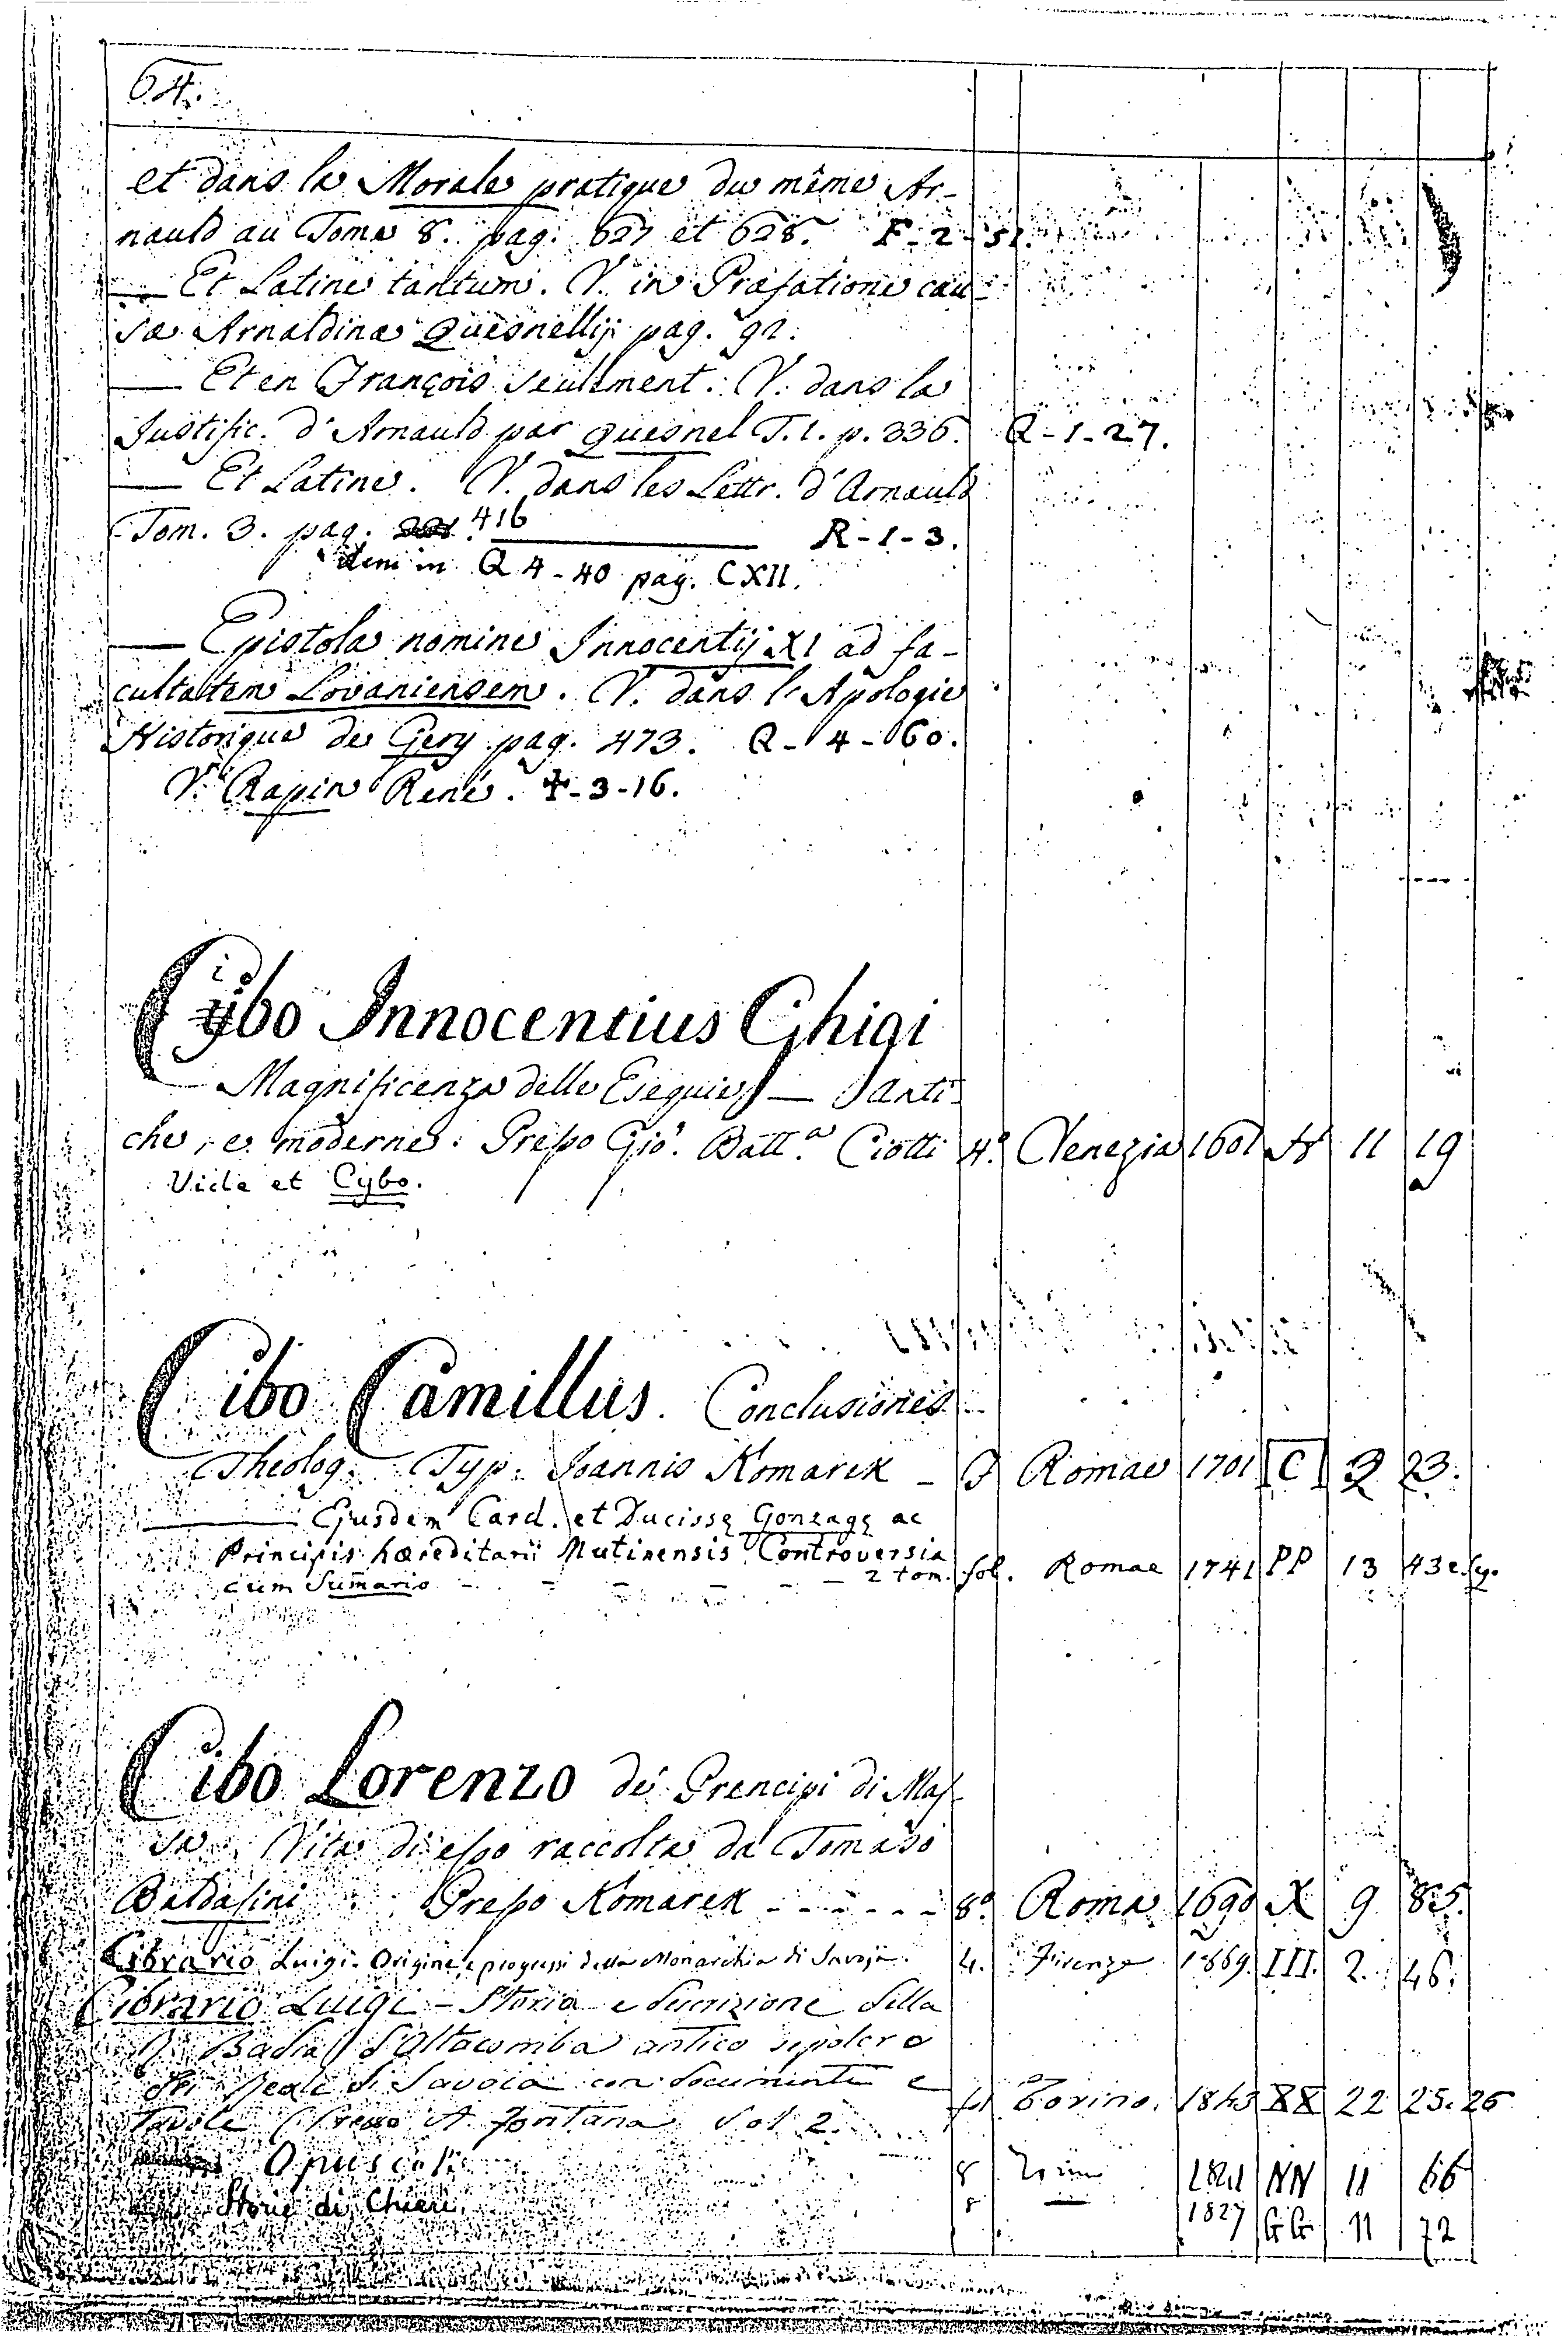 64.
et dans la Morale pratique du même Ar-
nauld au Tome 8. pag. 627 et 628. F-2-51.
— Et Latine tantum. V. in Præfatione cau-
sæ Arnaldinæ Quesnellij pag. 92.
— Et en François seulement. V. dans la
Justific. d'Arnauld par Quesnel T.1. p. 336. Q-1-27.
— Et Latine. V. dans les Lettr. d'Arnauld
Tom. 3. pag. 416 R-1-3.
item in Q 4-40 pag. CXII.
— Epistola nomine Innocentij XI ad fa-
cultatem Lovaniensem. V. dans l'Apologie
Historique de Gery pag. 473. Q-4-60.
V. Rapin René. F-3-16.
Cibo Innocentius Ghigi
Magnificenza delle Esequie — anti-
che, e moderne. Presso Gio. Batt.a Ciotti 4.o Venezia 1601 11 19
a
Vide et Cybo.
Cibo Camillus. Conclusiones
Theolog. Typ. Joannis Komarek - Romae 1701 C 2 23.
— Ejusdem Card. et Ducissę Gonzagę ac
Principis hæreditarii Mutinensis Controversia
cum Sumario - - - - 2 tom. fol. Romae 1741 PP 13 43 e sq.
Cibo Lorenzo de' Prencipi di Mas-
sa. Vita di esso raccolta da Tomaso
Baldasini Presso Komarek - - - - - - 8.o Roma 1690 X 9 85.
Cibrario Luigi. Origine e progressi della Monarchia di Savoja. 4. Firenze 1869. III. 2. 46.
Cibrario Luigi - Storia e descrizione della
R. Badia d'Altacomba antico sepolcro
dei Reali di Savoia con documenti e
Tavole Presso A. Fontana Vol. 2. fol. Torino. 1843 XX 22 25.26
Opuscoli 8 Torino 1841 NN 11 66
Storie di Chieri. 8 — 1827 GG 11 72